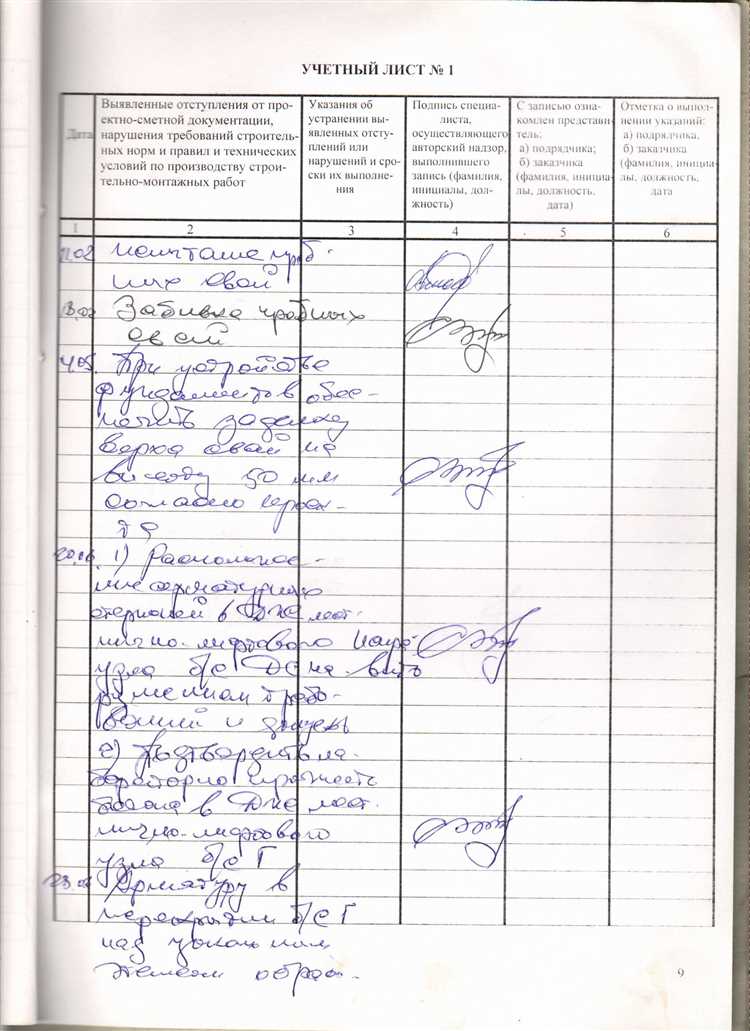 УЧЕТНЫЙ ЛИСТ № 1
Дата
Выявленные отступления от про-
ектно-сметной документации,
нарушения требований строитель-
ных норм и правил и технических
условий по производству строи-
тельно-монтажных работ
Указания об
устранении вы-
явленных отсту-
плений или
нарушений и сро-
ки их выполне-
ния
Подпись специа-
листа,
осуществляющего
авторский надзор,
выполнившего
запись (фамилия,
инициалы, дол-
жность)
С записью озна-
комлен представи-
тель:
а) подрядчика;
б) заказчика
(фамилия, инициа-
лы, должность.
дата)
Отметка о выпол-
нении указаний:
а) подрядчика,
б) заказчика
(фамилия, инициа-
лы, должность.
дата
1 2 3 4 5 6
свай
Забивка пробных
свай
При устройстве
фундаментов обес-
печить заделку
верха свай на
высоту 50 мм
согласно проек-
та
1)
стержней в
лест-
нично-лифтового
узла б/с
и
2) Подтвердить ла-
бораторно прочность
бетона в лест-
нично-лифтового
узла б/с Г
Арматуру в
перекрытии б/с Г
над цокольным
этажом
9